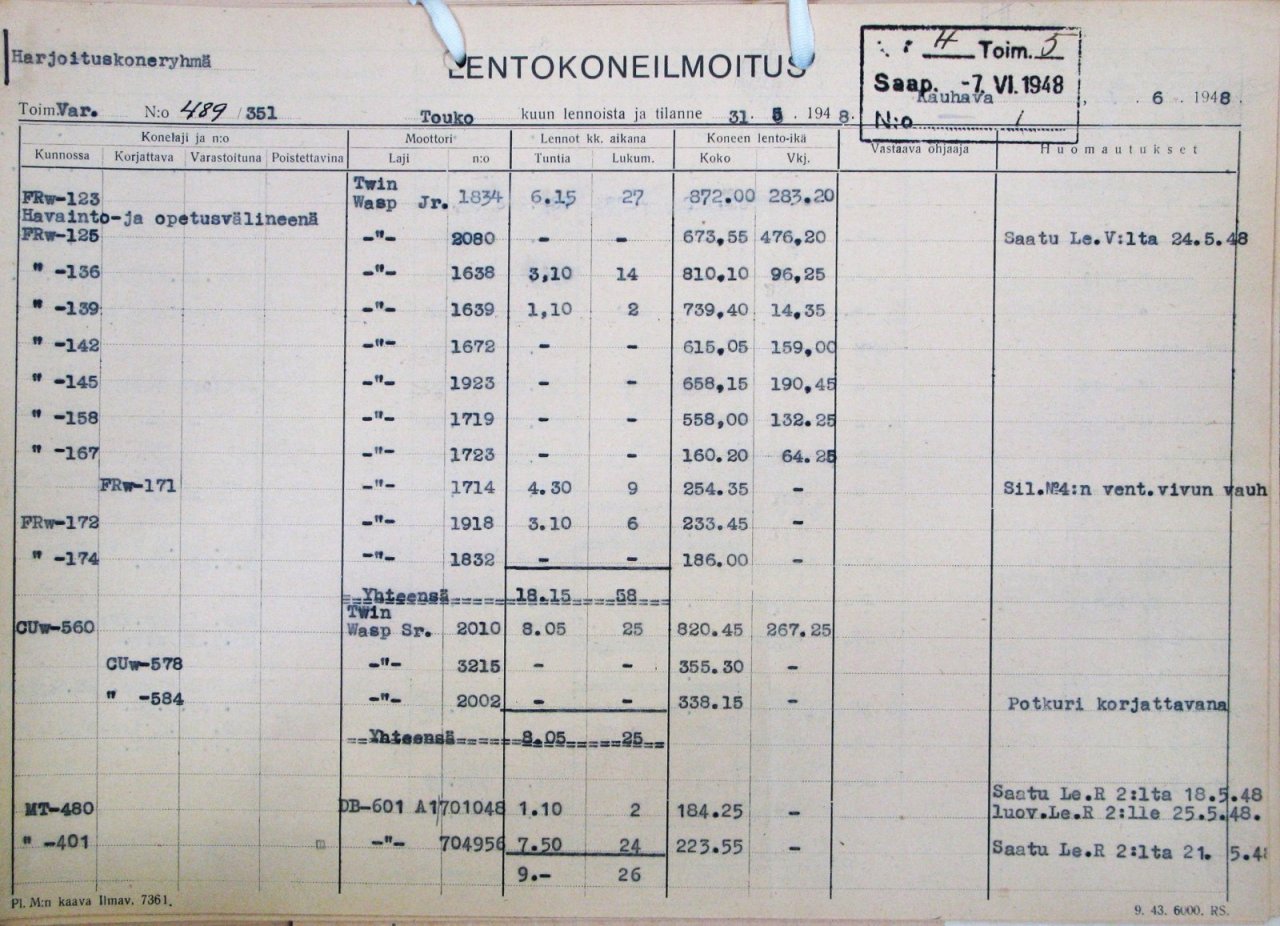 Harjoituskoneryhmä
LENTOKONEILMOITUS
H Toim. 5
Saap. -7. VI. 1948
N:o 1
Toim Var. N:o 489 / 351 Touko kuun lennoista ja tilanne 31. 5 . 194 8. Kauhava , . 6 . 1948.
Konelaji ja n:o Moottori Lennot kk. aikana Koneen lento-ikä Vastaava ohjaaja Huomautukset
Kunnossa Korjattava Varastoituna Poistettavina Laji n:o Tuntia Lukum. Koko Vkj.
FRw-123 Twin Wasp Jr. 1834 6.15 27 872.00 283.20
Havainto-ja opetusvälineenä
FRw-125 -"- 2080 - - 673,55 476,20 Saatu Le.V:lta 24.5.48
" -136 -"- 1638 3,10 14 810,10 96,25
" -139 -"- 1639 1,10 2 739,40 14,35
" -142 -"- 1672 - - 615,05 159,00
" -145 -"- 1923 - - 658,15 190,45
" -158 -"- 1719 - - 558,00 132.25
" -167 -"- 1723 - - 160.20 64.25
FRw-171 -"- 1714 4.30 9 254.35 - Sil.№4:n vent.vivun vauh
FRw-172 -"- 1918 3.10 6 233.45 -
" -174 -"- 1832 - - 186.00 -
Yhteensä 18.15 58
CUw-560 Twin Wasp Sr. 2010 8.05 25 820.45 267.25
CUw-578 -"- 3215 - - 355.30 -
" -584 -"- 2002 - - 338.15 - Potkuri korjattavana
Yhteensä 8.05 25
Saatu Le.R 2:lta 18.5.48
MT-480 DB-601 A1701048 1.10 2 184.25 - luov.Le.R 2:lle 25.5.48.
" -401 m -"- 704956 7.50 24 223.55 - Saatu Le.R 2:lta 21. 5.48
9.- 26
Pl. M:n kaava Ilmav. 7361.
9. 43. 6000. RS.